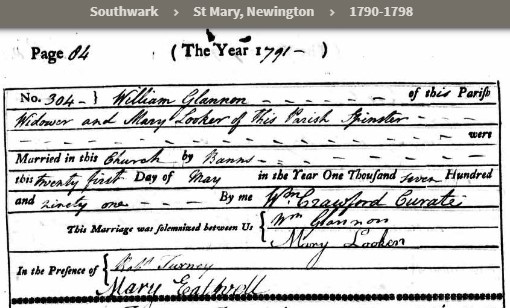 Southwark › St Mary, Newington › 1790-1798
Page 84 ( The Year 1791 - )
No. 304 - } William Glannon - - - - - - of this Parish
Widower and Mary Looker of this Parish Spinster - -
- - - - - - - - - - - - were
Married in this Church by Banns - - - - - - -
this twenty first Day of May in the Year One Thousand seven Hundred
and ninety one - - - By me Wm Crawford Curate
This Marriage was solemnized between Us { Wm Glannon
Mary Looker
In the Presence of { Robt Turney
Mary